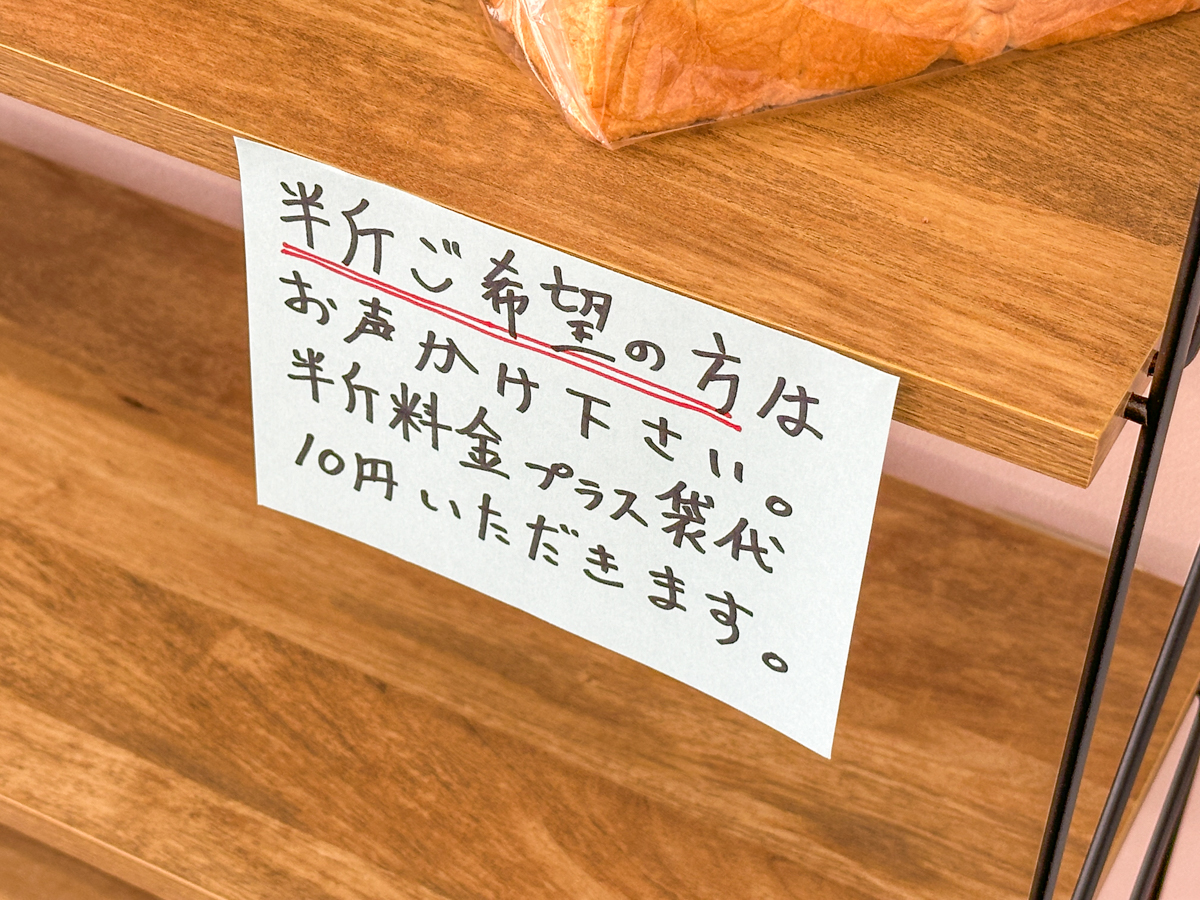 半斤ご希望の方は
お声かけ下さい。
半斤料金プラス袋代
10円いただきます。